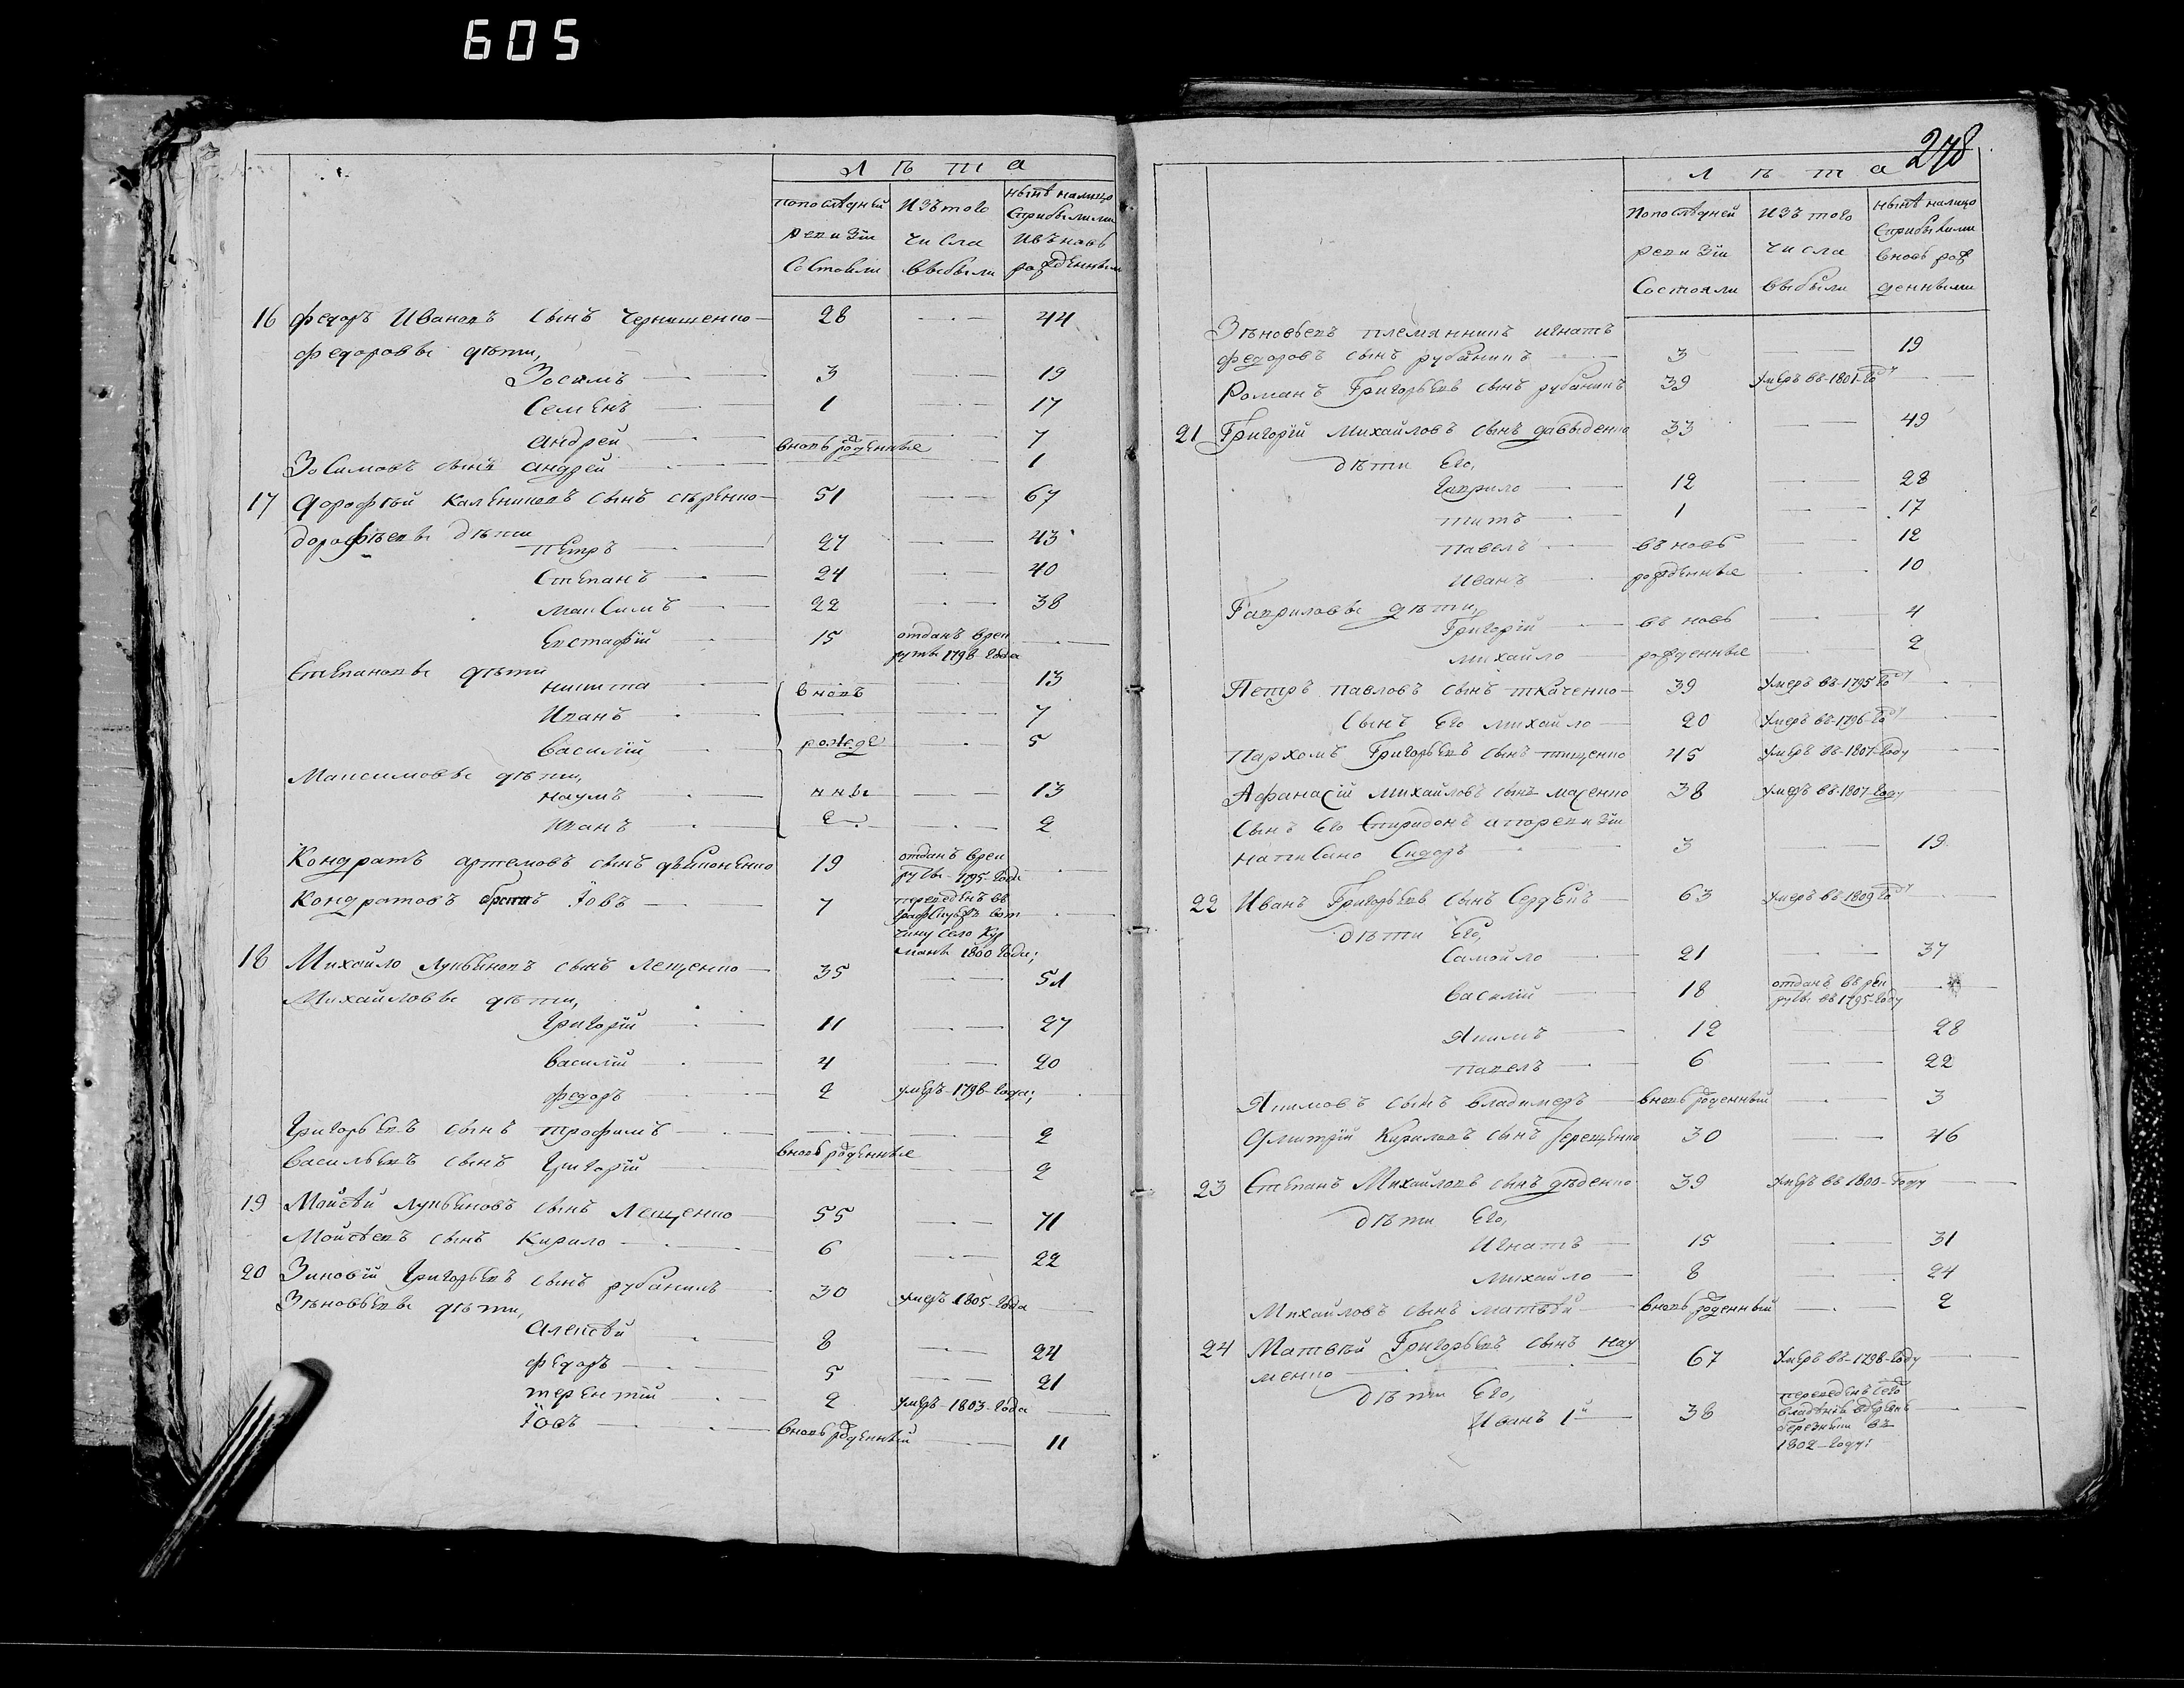 605
лѣта
попослѣдней ревизіи состояли
изътого числа выбыли
нынѣ налицо сприбылими ивъновь рожденными
16 Федоръ Ивановъ сынъ Чернишенко 28 44
Федоровы дѣти,
Зосимъ 3 19
Семенъ 1 17
андрей вновь рожденные 7
Зосимовъ сынъ андрей 1
17 Дорофѣй Калениковъ сынъ сѣренко 51 67
дорофѣевы дѣти
Петръ 27 43
Степанъ 24 40
Максимъ 22 38
Евстафій 15 отданъ врек
руты 1798 года
Степановы дѣти
никита вновь 13
Иванъ 7
Василій рожде 5
Максимовы дѣти,
Наумъ нны 13
Иванъ е 2
Кондратъ артемовъ сынъ 19 отданъ врек
руты 1795 года
Кондратовъ братъ Іовъ 7 переведенъ въ
вот
чину село Кур
маны 1800 года;
18 Михайло лукьяновъ сынъ лещенко 35 51
Михайловы дѣти,
Григорій 11 27
Василій 4 20
Федоръ 2 умеръ 1798 года;
Григорьевъ сынъ трофимъ 2
вновь рожденные
Васильевъ сынъ Григорій 2
19 Мойсѣй лукьяновъ сынъ лещенко 55 71
Мойсѣевъ сынъ Кирило 6 22
20 Зиновій Григорьевъ сынъ рубаникъ 30 умеръ 1805 года
Зѣновьевы дѣти,
Алексѣй 8 24
Федоръ 5 21
терентій 2 умеръ 1803 года
Іовъ вновь рожденный 11
278
лѣта
попослѣдней ревизіи состояли
изътого числа выбыли
нынѣ налицо сприбылими вновь рожденными
Зѣновьевъ племянникъ игнатъ
федоровъ сынъ рубаникъ 3 19
Романъ Григорьевъ сынъ рубаникъ 39 умеръ въ 1801 году
21 Григорій Михайловъ сынъ давыденко 33 49
дѣти Его,
Гаврило 12 28
титъ 1 17
павелъ въновь 12
Иванъ рожденные 10
Гавриловы дѣти,
Григорій въновь 4
михайло рожденные 2
Петръ павловъ сынъ ткаченко 39 умеръ въ 1795 году
сынъ Его михайло 20 умеръ въ 1796 году
Пархомъ Григорьевъ сынъ тищенко 45 умеръ въ 1807 году
Афанасій михайловъ сынъ 38 умеръ въ 1807 году
сынъ Его Спиридонъ апоревизіи
написано Сидоръ 3 19
22 Иванъ Григорьевъ сынъ 63 умеръ въ 1809 году
дѣти Его,
Самойло 21 37
Василій 18 отданъ въ рек
руты въ 1795 году
Якимъ 12 28
павелъ 6 22
Якимовъ сынъ владимеръ вновь рожденный 3
Дмитрій Кириловъ сынъ терещенко 30 46
23 Степанъ Михайловъ сынъ дѣденко 39 умеръ въ 1800 году
дѣти Его,
Игнатъ 15 31
михайло 8 24
Михайловъ сынъ матвѣй вновь рожденный 2
24 Матвѣй Григорьевъ сынъ нау
менко 67 умеръ въ 1798 году
дѣти Его,
Иванъ 1й 38 переведенъ
березники въ
1802 году: